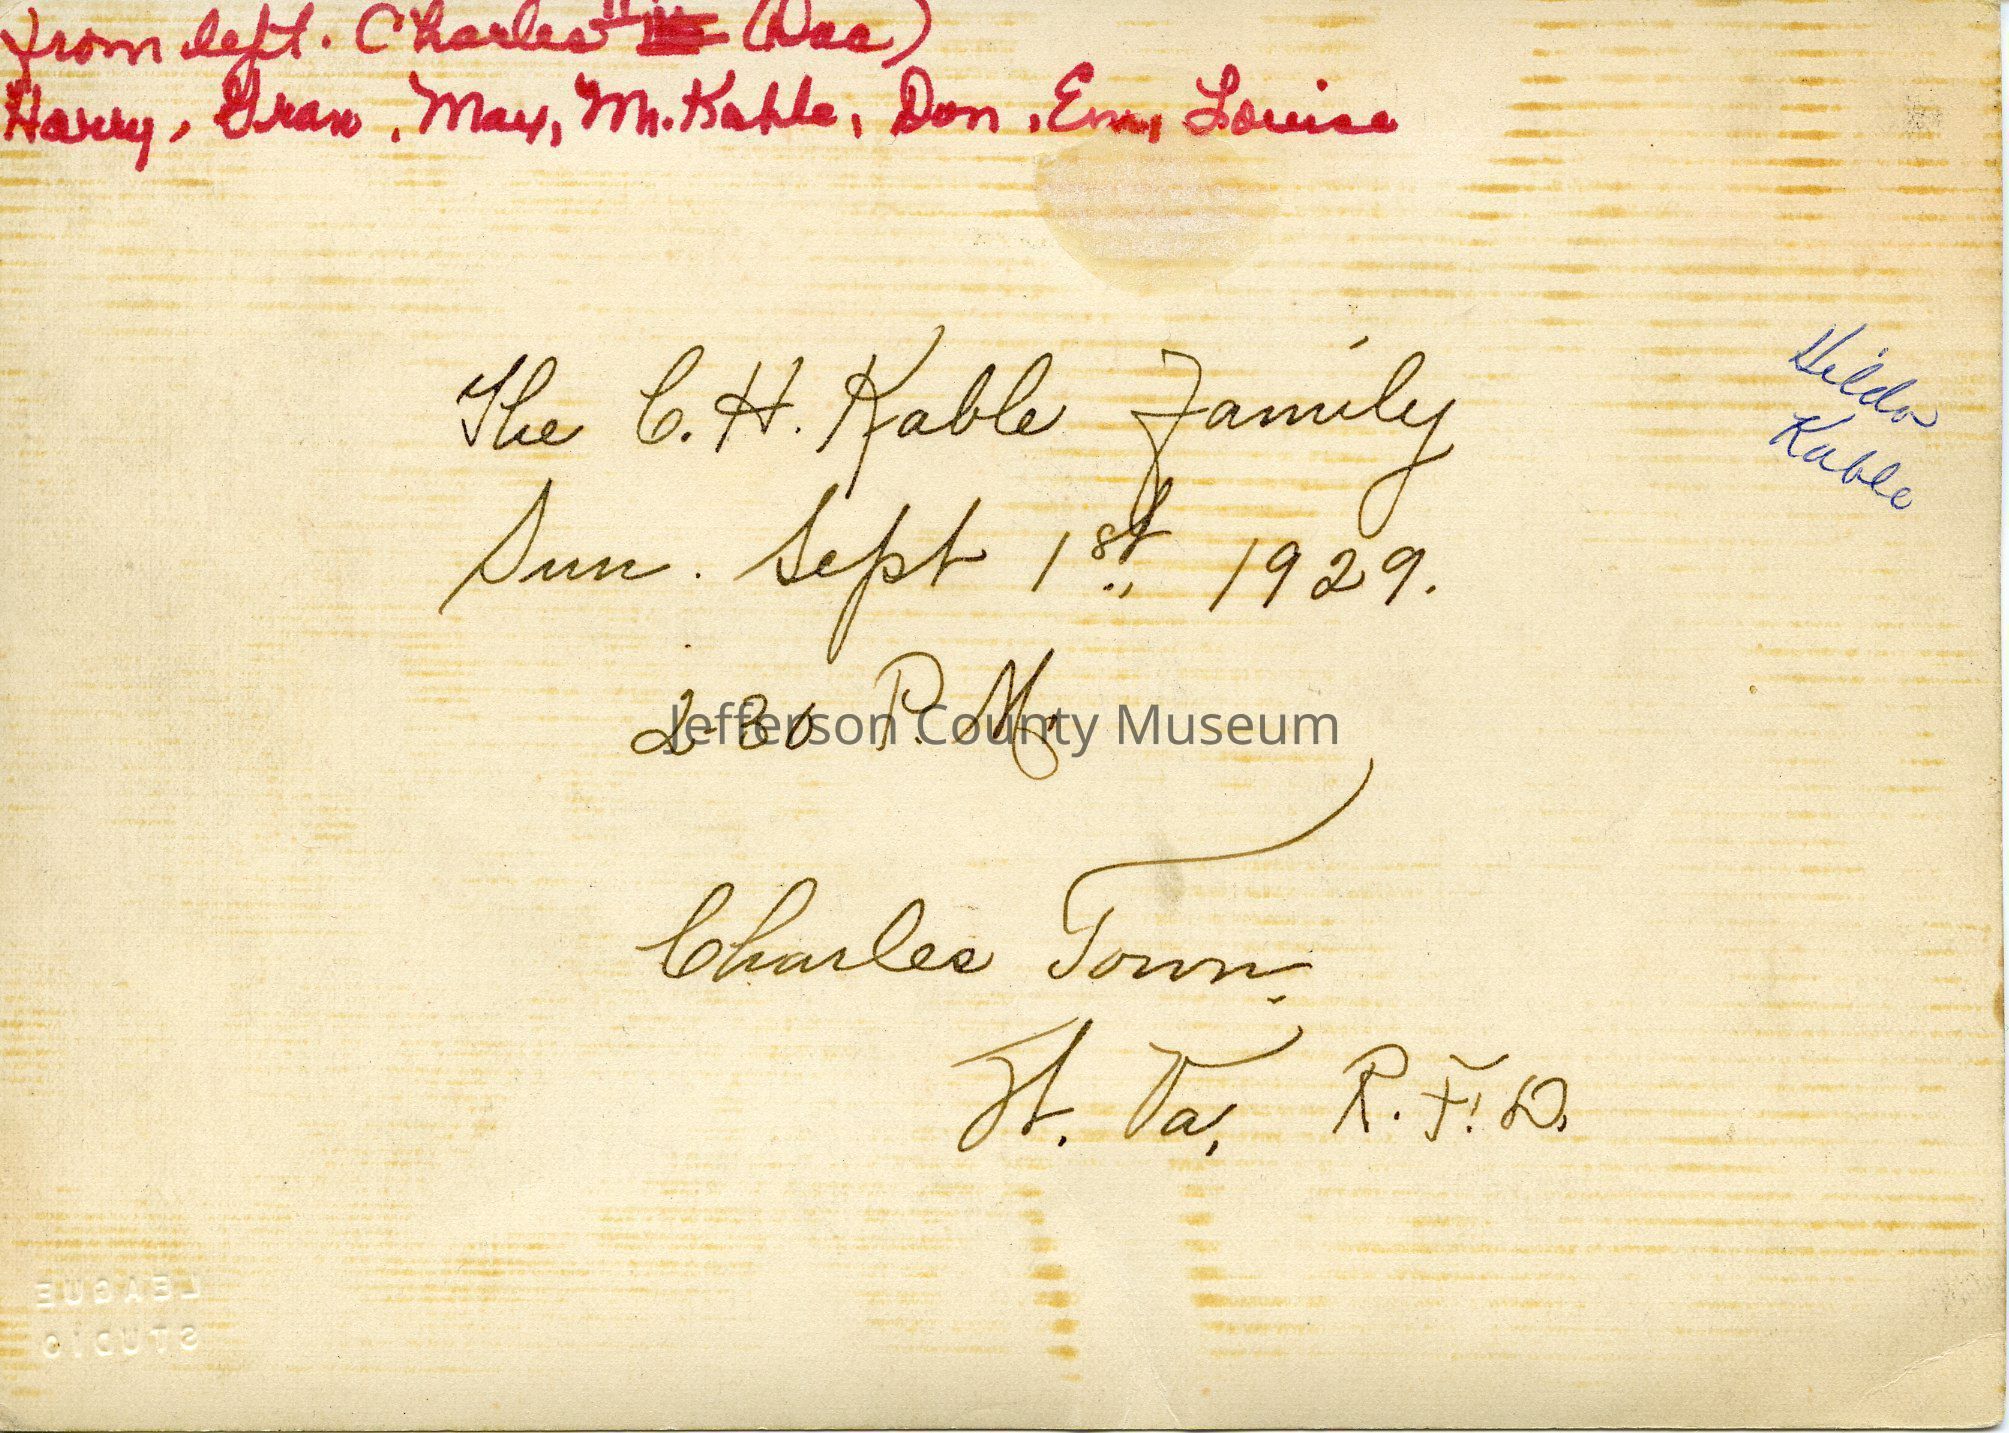 from left. Charles II (Dad)
Harry, Gran, May, Mr. Kable, Don, Em, Louise
Hilda
Kable
The C. H. Kable Family
Sun. Sept 1st, 1929.
2-30 P. M.
Jefferson County Museum
Charles Town.
W. Va, R. F. D.
LEAGUE
STUDIO